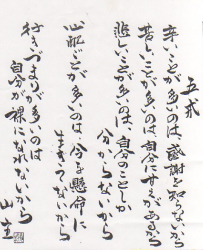 五戒
辛いことが多いのは、感謝を知らないから
苦しいことが多いのは、自分に甘えがあるから
悲しいことが多いのは、自分のことしか
分からないから
心配ごとが多いのは、今を懸命に
生きてないから
行きづまりが多いのは
自分が裸になれないから